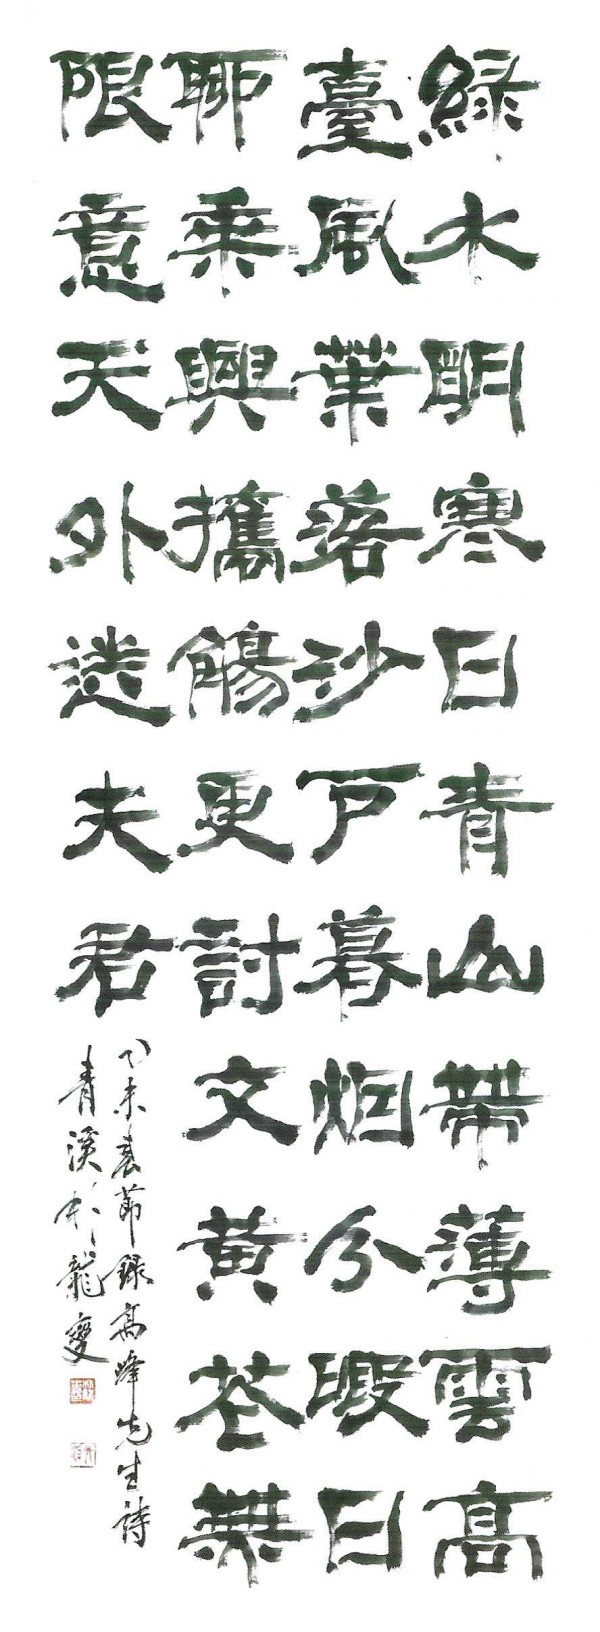 綠水明寒日青山帶薄雲高
臺風葉落沙戶暮烟分暇日
聊乘興攜觴更討文黃花無
限意天外送夫君
乙未春節錄高峰先生詩
青溪龍